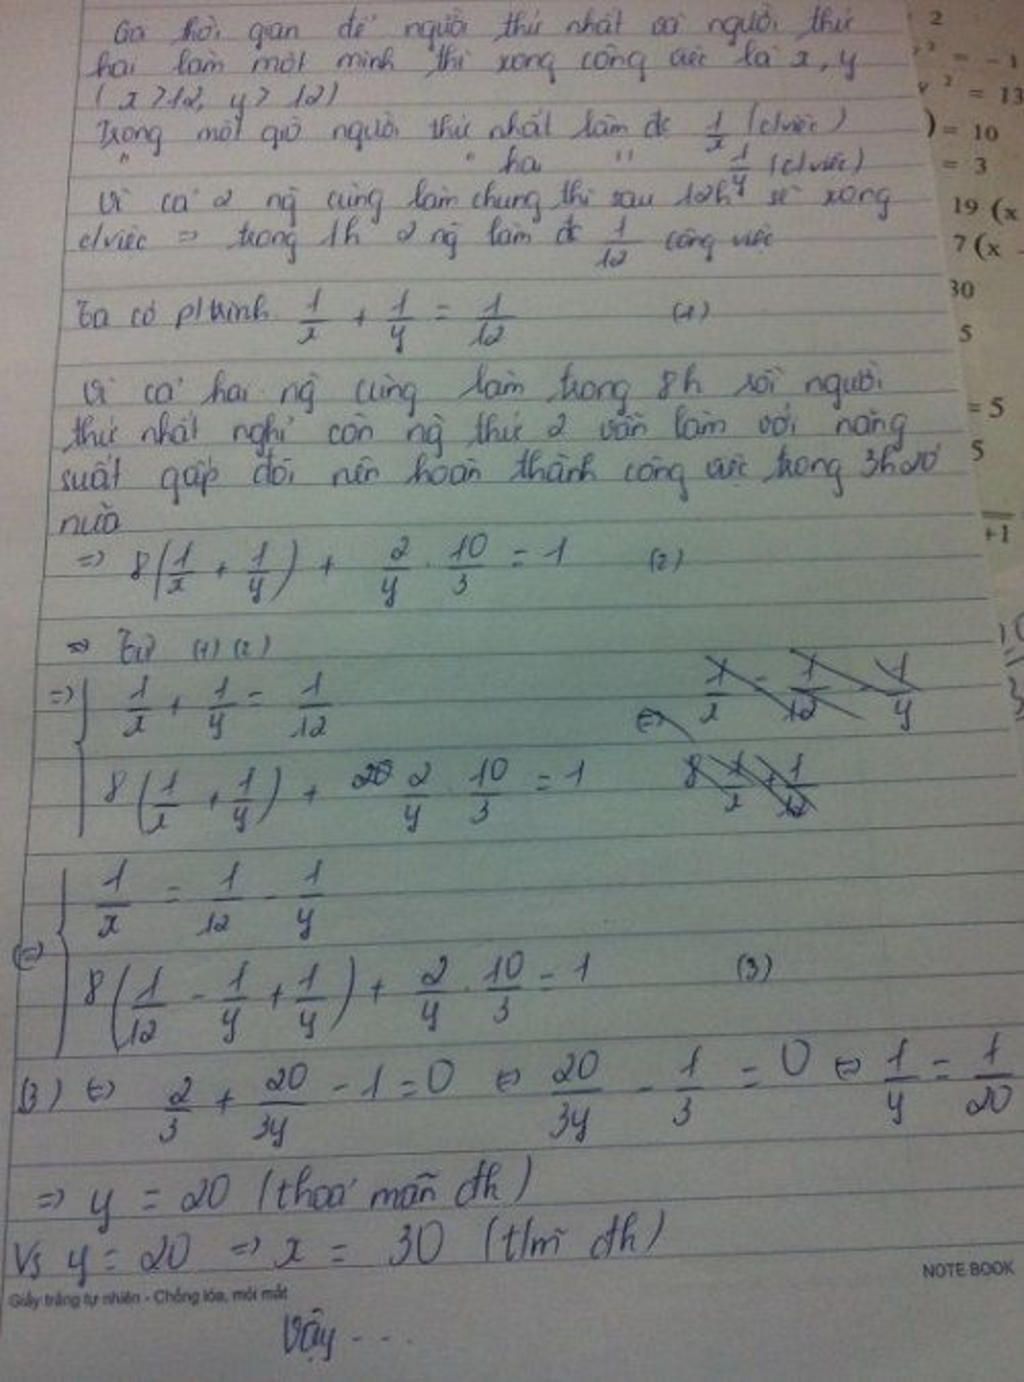 Gọi thời gian để người thứ nhất và người thứ
hai làm một mình thì xong công việc là x, y
(x > 12, y > 12)
Trong một giờ người thứ nhất làm đc 1/x (c/việc)
" " hai " 1/y (c/việc)
Vì cả 2 ng cùng làm chung thì sau 12h sẽ xong
c/việc => trong 1h 2 ng làm đc 1/12 công việc
Ta có p/trình 1/x + 1/y = 1/12 (1)
Vì cả hai ng cùng làm trong 8h rồi người
thứ nhất nghỉ còn ng thứ 2 vẫn làm với năng
suất gấp đôi nên hoàn thành công việc trong 3h20'
nữa
=> 8(1/x + 1/y) + 2/y . 10/3 = 1 (2)
=> Từ (1) (2)
=> { 1/x + 1/y = 1/12
8(1/x + 1/y) + 2/y 10/3 = 1
<=> { 1/x = 1/12 - 1/y
8(1/12 - 1/y + 1/y) + 2/y . 10/3 = 1 (3)
(3) <=> 2/3 + 20/3y - 1 = 0 <=> 20/3y - 1/3 = 0 <=> 1/y = 1/20
=> y = 20 (thoả mãn đk)
Vs y = 20 => x = 30 (t/m đk)
NOTE BOOK
Giấy trắng tự nhiên - Chống lóa, mỏi mắt
Vậy - - -
2
= - 1
= 13
) = 10
= 3
19 (x
7 (x -
30
5
= 5
5
+1